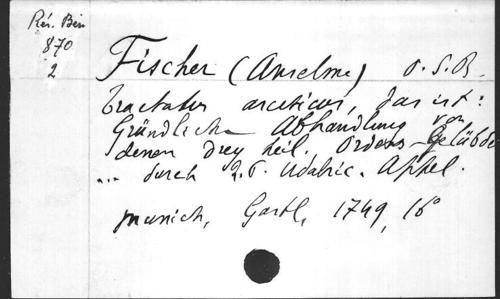 Rés. Bén
870
2
Fischer (Anselme) O.S.B.
Tractatus asceticus, das ist:
Gründliche Abhandlung von
denen drey heil. Ordens-Gelübde
... durch R.P. Udalric. Appel.
Munich, Gastl, 1749, 16°